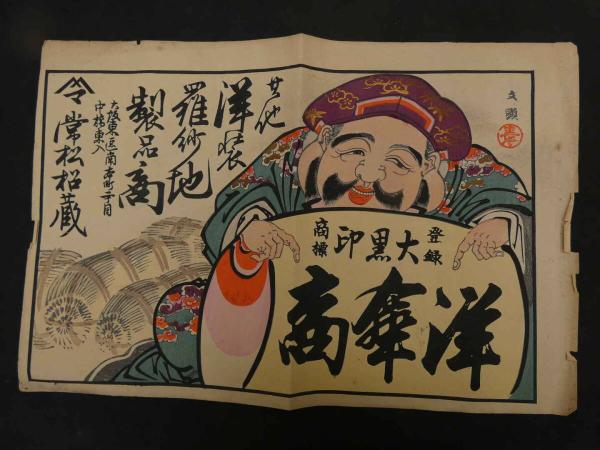 登録
大黒印
商標
洋傘商
其他
洋装
羅紗地
製品商
大阪東区南本町二丁目
中橋東入
常松松蔵